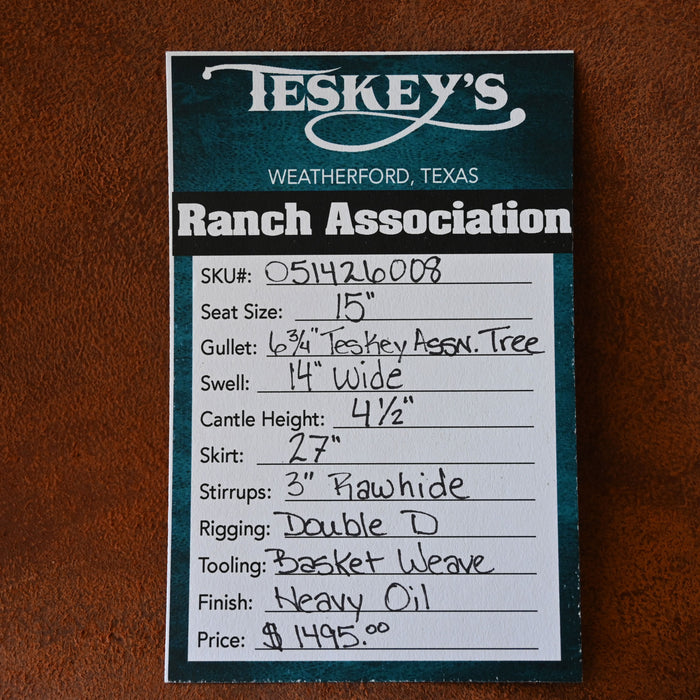 TESKEY'S
WEATHERFORD, TEXAS
Ranch Association
SKU#: 051426008
Seat Size: 15"
Gullet: 6¾" Teskey Assn. Tree
Swell: 14" Wide
Cantle Height: 4½"
Skirt: 27"
Stirrups: 3" Rawhide
Rigging: Double D
Tooling: Basket Weave
Finish: Heavy Oil
Price: $1495.00